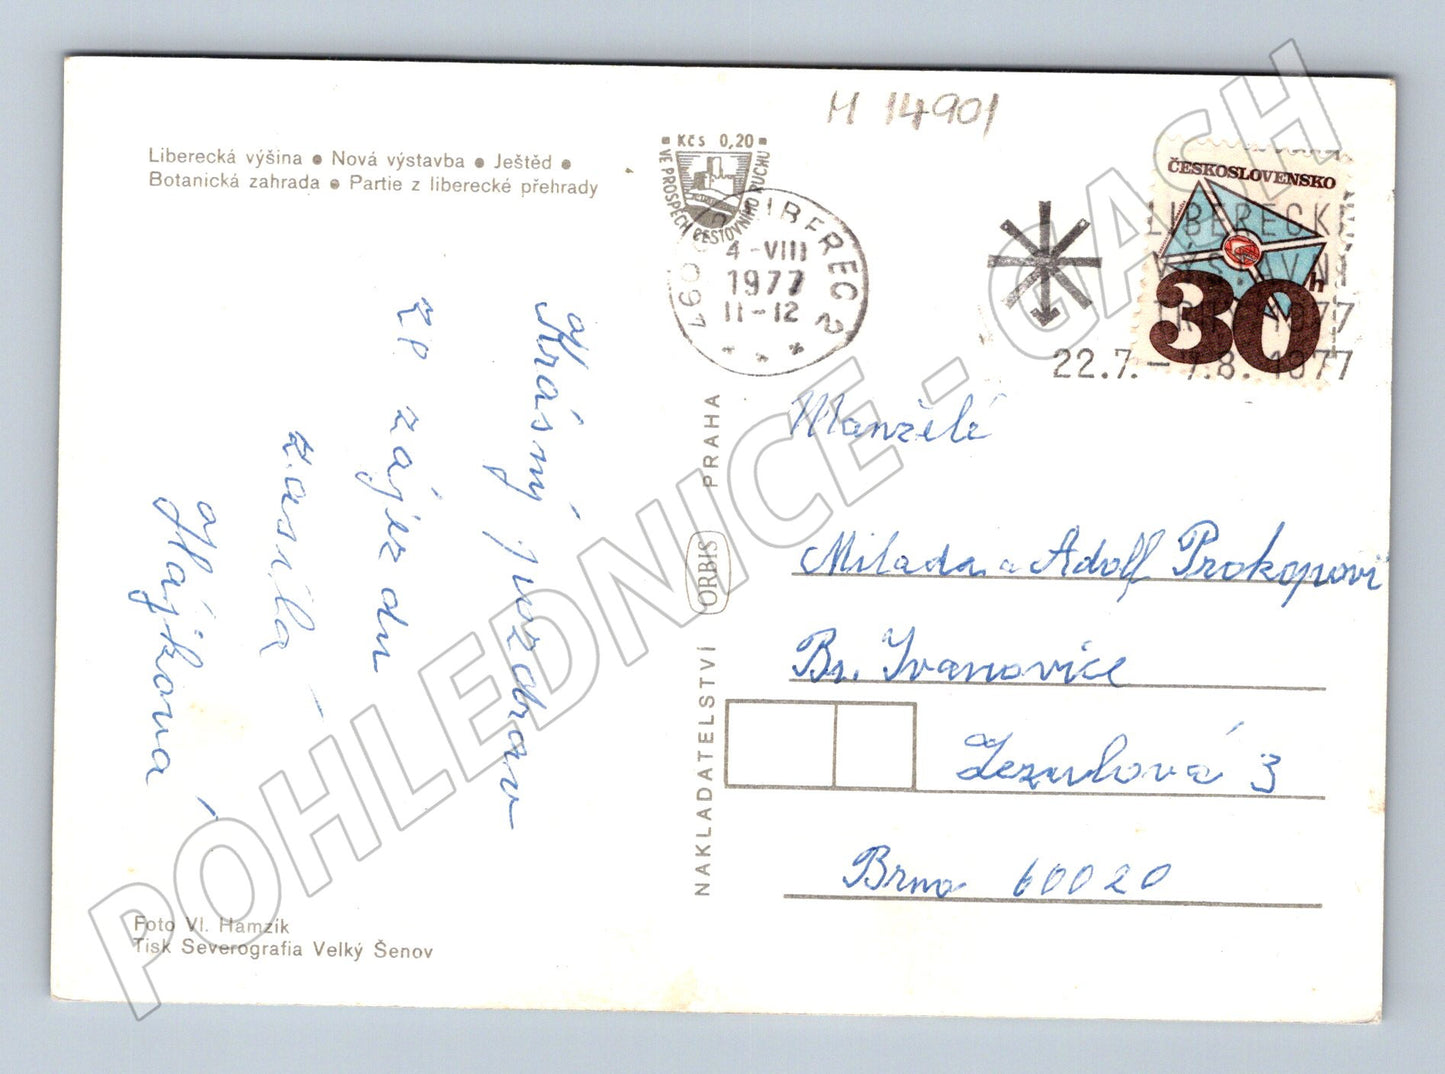 M 14901
Liberecká výšina ● Nová výstavba ● Ještěd ●
Botanická zahrada ● Partie z liberecké přehrady
Kčs 0,20
VE PROSPĚCH CESTOVNÍHO RUCHU
LIBEREC 2
4.-VIII
1977
11-12
ČESKOSLOVENSKO
30h
LIBERECKÉ
VÝSTAVNÍ
TRHY 1977
22.7.-7.8.1977
Krásný pozdrav
ze zájezdu
zasílá
Hájková
Manželé
Milada a Adolf Prokopovi
Br. Ivanovice
Jezulová 3
Brno 60020
NAKLADATELSTVÍ ORBIS PRAHA
Foto Vl. Hamzík
Tisk Severografia Velký Šenov
POHLEDNICE - GASH